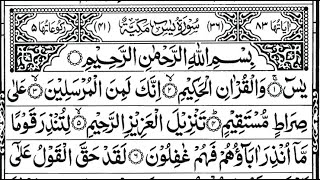 اٰیَاتُهَا ۸۳ (۳۶) سُوْرَةُ یٰسٓ مَكِّیَّةٌ (۴۱) رُكُوْعَاتُهَا ۵
بِسْمِ اللّٰهِ الرَّحْمٰنِ الرَّحِیْمِ
یٰسٓ ۚ﴿۱﴾ وَ الْقُرْاٰنِ الْحَكِیْمِ ۙ﴿۲﴾ اِنَّكَ لَمِنَ الْمُرْسَلِیْنَ ۙ﴿۳﴾ عَلٰی
صِرَاطٍ مُّسْتَقِیْمٍ ؕ﴿۴﴾ تَنْزِیْلَ الْعَزِیْزِ الرَّحِیْمِ ۙ﴿۵﴾ لِتُنْذِرَ قَوْمًا
مَّاۤ اُنْذِرَ اٰبَآؤُهُمْ فَهُمْ غٰفِلُوْنَ ﴿۶﴾ لَقَدْ حَقَّ الْقَوْلُ عَلٰۤی